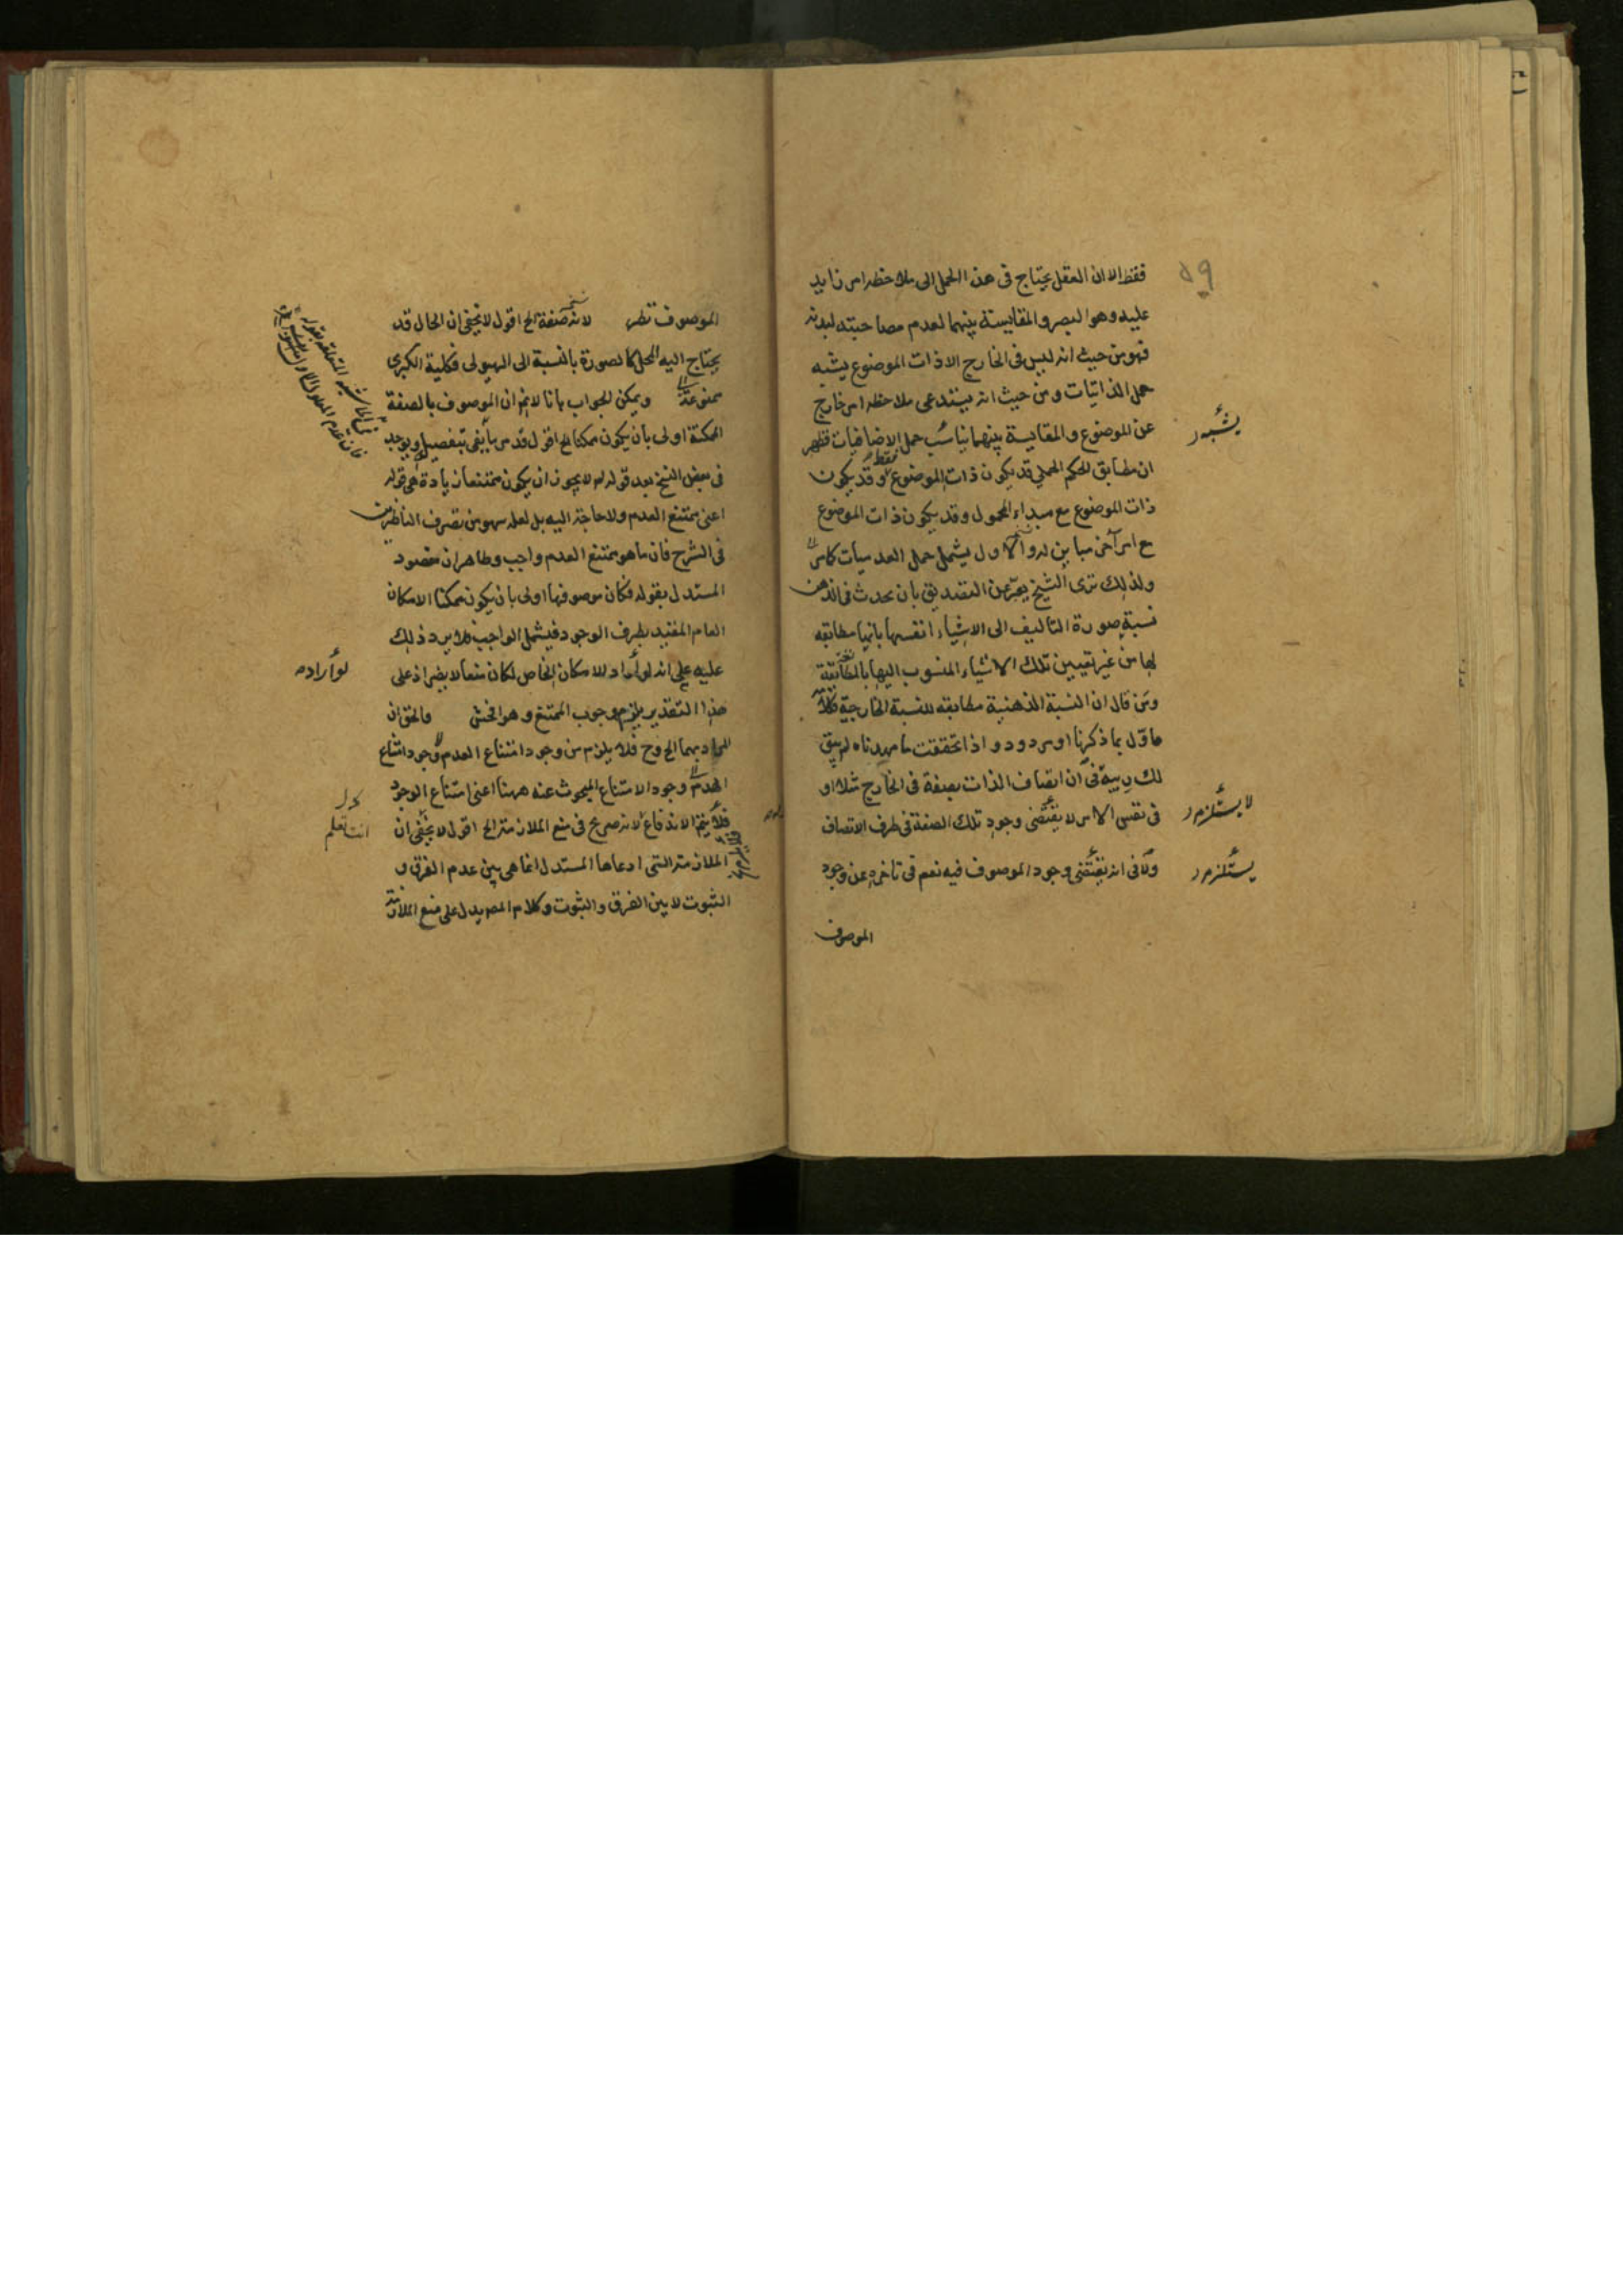 ٥٩
فقط الا ان العقل يحتاج فى هذا الحمل الى ملاحظة امر زايد
عليه وهو البصر والمقايسة بينهما لعدم مصاحبته لبدنه
فهو من حيث انه ليس فى الخارج الا ذات الموضوع يشبه
حمل الذاتيات ومن حيث انه يستدعى ملاحظة امر خارج
عن الموضوع والمقايسة بينهما يناسب حمل الاضافيات فظهر
يشبه
ان مطابق الحكم الحملي قد يكون ذات الموضوع فقط وقد يكون
ذات الموضوع مع مبداء المحمول وقد يكون ذات الموضوع
مع امر آخر مباين له والاول يشمل حمل العدميات كامر
ولذلك ترى الشيخ يعبر عن التصديق بان يحدث فى الذهن
نسبة صورة التاليف الى الاشياء انفسها بانها مطابقة
لها من غير تعيين تلك الاشياء المنسوب اليها بالمطابقة
ومن قال ان النسبة الذهنية مطابقه للنسبة الخارجية فكلامه
ماوّل بما ذكرنا او مردود و اذا تحققت ما مهدناه لم يبق
لك ريبة فى ان اتصاف الذات بصفة فى الخارج مثلا او
فى نفس الامر لا يقتضى وجود تلك الصفة فى ظرف الاتصاف
لا يستلزم
ولا فى انه يقتضى وجود الموصوف فيه نعم فى تاخره عن وجود
يستلزم
الموصوف
الموصوف نظر لانه صفة الخ اقول لا يخفى ان الحال قد
يحتاج اليه المحل كالصورة بالنسبة الى الهيولى فكلية الكبرى
ممنوعة ويمكن الجواب بانا لانم ان الموصوف بالصفة
الممكنة اولى بان يكون ممكنا الخ اقول قد مر ما يفى بتفصيله ويوجد
فى بعض النسخ بعد قوله لم لا يجوز ان يكون ممتنعا زيادة هى قوله
اعنى ممتنع العدم ولا حاجة اليه بل لعله سهو من تصرف الناظرين
فى الشرح فان ما هو ممتنع العدم واجب وظاهر ان مقصود
المستدل بقوله فكان موصوفها اولى بان يكون ممكنا الامكان
العام المقيد بطرف الوجود فيشمل الواجب فلا يرد ذلك
عليه على انه لو أراد الامكان الخاص لكان منعا لا يضر اذ على
لو أراد
هذا التقدير يلزم وجوب الممتنع وهو افحش والحق ان
المراد بهما الخ وح فلا يلزم من وجود امتناع العدم وجود امتناع
العدم وجود الامتناع المبحوث عنه ههنا اعنى امتناع الوجود
فلا يتم الاندفاع لانه صريح فى منع الملازمة الخ اقول لا يخفى ان
انت تعلم
الملازمة التى ادعاها المستدل انما هى بين عدم الفرق و
الثبوت لا بين الفرق والثبوت وكلام المص يدل على منع الملازمة